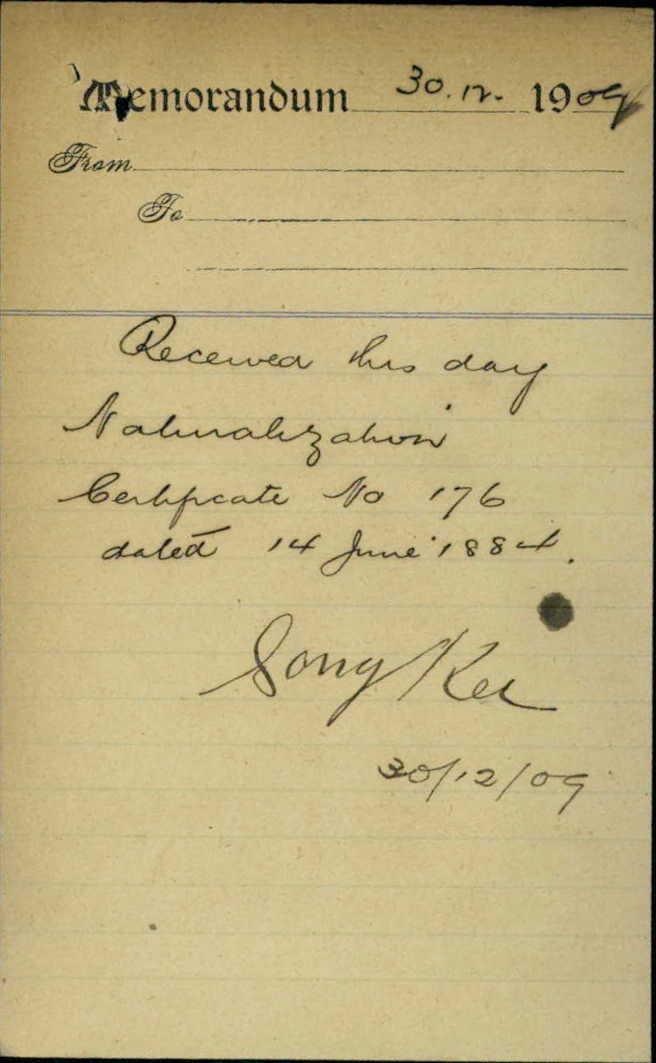 Memorandum 30.12. 1909
From
To
Received this day
Naturalization
Certificate No 176
dated 14 June 1884.
Song Kee
30/12/09